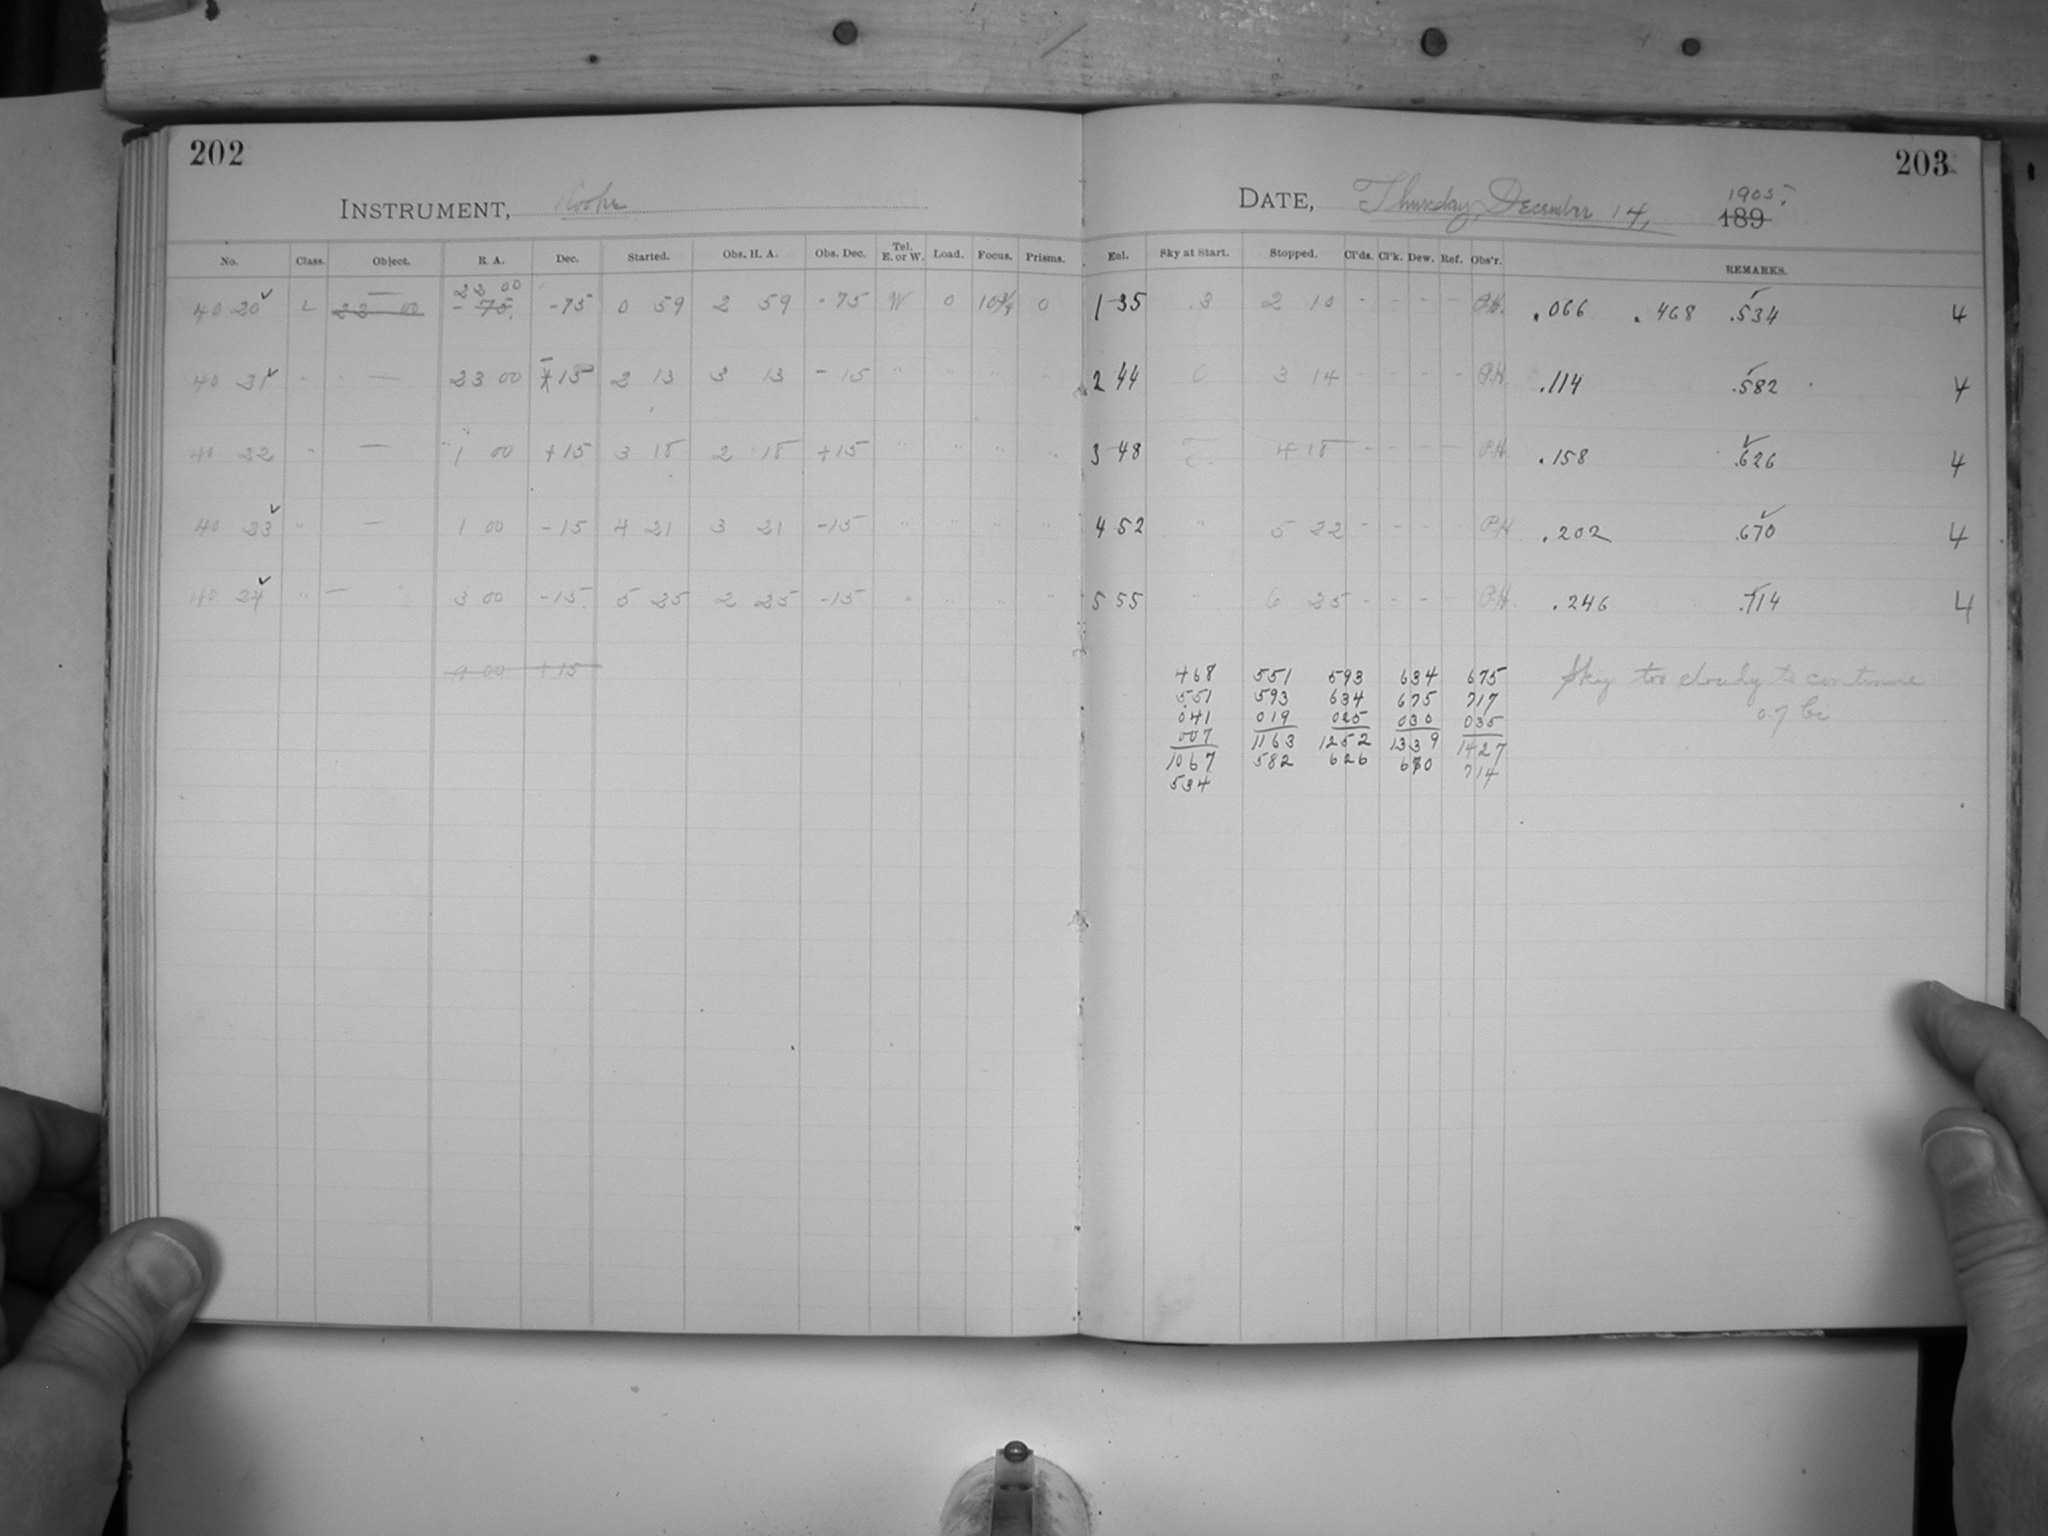 202
203
INSTRUMENT, Cooke
DATE, Thursday, December 14, 1905. 189
No. Class. Object. R. A. Dec. Started. Obs. H. A. Obs. Dec. Tel. E. or W. Load. Focus. Prisms. Enl. Sky at Start. Stopped. Cl'ds. Cl'k. Dew. Ref. Obs'r. REMARKS.
22 00
40 20 ✓ L — 22 00 - 75. -75 0 59 2 59 -75 W 0 10 3/4 0 1 35 .3 2 10 - - - - P.H. .066 .468 .534 ✓ 4
40 21 ✓ " — 23 00 - 15 2 13 3 13 - 15 " " " " 2 44 0 3 14 - - - - P.H. .114 .582 ✓ 4
40 22 " — 1 00 +15 3 18 2 18 +15 " " " " 3 48 4 18 - - - - P.H. .158 .626 ✓ 4
40 23 ✓ " — 1 00 -15 4 21 3 21 -15 " " " " 4 52 " 5 22 - - - P.H. .202 .670 ✓ 4
40 24 ✓ " — 3 00 -15. 5 25 2 25 -15 " " " " 5 55 " 6 25 - - - - P.H. .246 .714 ✓ 4
9 00 +15
468 551 593 634 675 Sky too cloudy to continue
551 593 634 675 717
041 019 025 030 035 0.7 Ci
007 1163 1252 1339 1427
1067 582 626 670 714
534